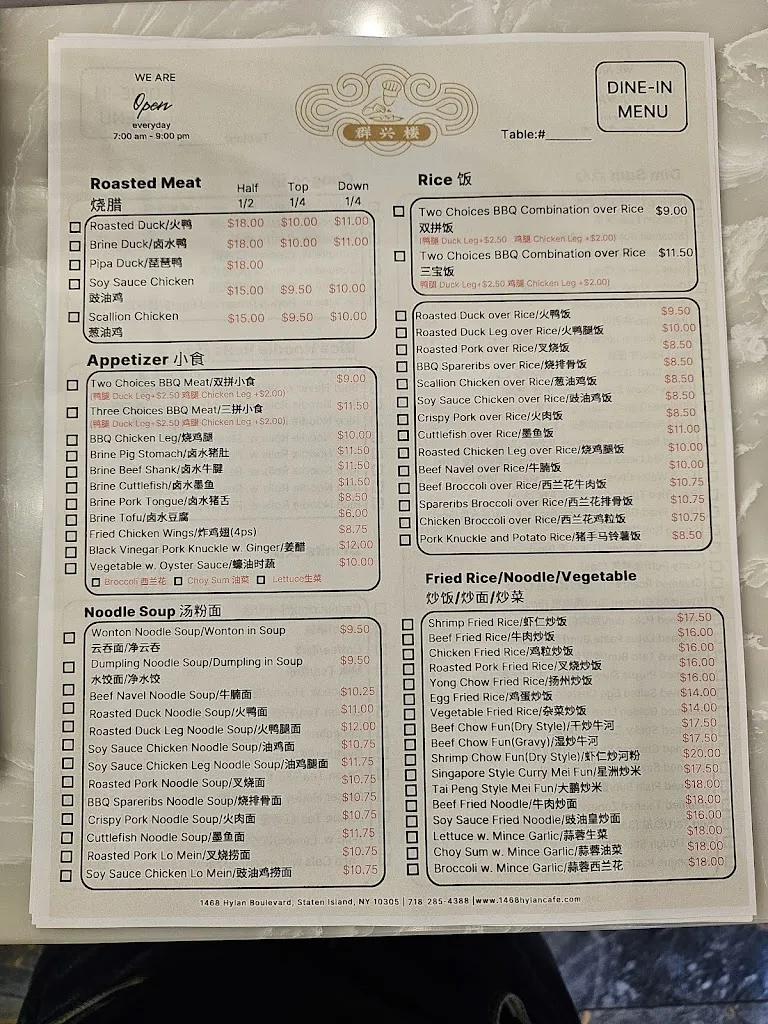 WE ARE
Open
everyday
7:00 am - 9:00 pm
群兴楼
Table:#______
DINE-IN
MENU
Roasted Meat
烧腊
Half Top Down
1/2 1/4 1/4
Roasted Duck/火鸭 $18.00 $10.00 $11.00
Brine Duck/卤水鸭 $18.00 $10.00 $11.00
Pipa Duck/琵琶鸭 $18.00
Soy Sauce Chicken
豉油鸡 $15.00 $9.50 $10.00
Scallion Chicken
葱油鸡 $15.00 $9.50 $10.00
Appetizer 小食
Two Choices BBQ Meat/双拼小食 $9.00
(鸭腿 Duck Leg+$2.50 鸡腿 Chicken Leg +$2.00)
Three Choices BBQ Meat/三拼小食 $11.50
(鸭腿 Duck Leg+$2.50 鸡腿 Chicken Leg +$2.00)
BBQ Chicken Leg/烧鸡腿 $10.00
Brine Pig Stomach/卤水猪肚 $11.50
Brine Beef Shank/卤水牛腱 $11.50
Brine Cuttlefish/卤水墨鱼 $11.50
Brine Pork Tongue/卤水猪舌 $8.50
Brine Tofu/卤水豆腐 $6.00
Fried Chicken Wings/炸鸡翅(4ps) $8.75
Black Vinegar Pork Knuckle w. Ginger/姜醋 $12.00
Vegetable w. Oyster Sauce/蠔油时蔬 $10.00
Broccoli 西兰花 Choy Sum 油菜 Lettuce生菜
Noodle Soup 汤粉面
Wonton Noodle Soup/Wonton in Soup $9.50
云吞面/净云吞
Dumpling Noodle Soup/Dumpling in Soup $9.50
水饺面/净水饺
Beef Navel Noodle Soup/牛腩面 $10.25
Roasted Duck Noodle Soup/火鸭面 $11.00
Roasted Duck Leg Noodle Soup/火鸭腿面 $12.00
Soy Sauce Chicken Noodle Soup/油鸡面 $10.75
Soy Sauce Chicken Leg Noodle Soup/油鸡腿面 $11.75
Roasted Pork Noodle Soup/叉烧面 $10.75
BBQ Spareribs Noodle Soup/烧排骨面 $10.75
Crispy Pork Noodle Soup/火肉面 $10.75
Cuttlefish Noodle Soup/墨鱼面 $11.75
Roasted Pork Lo Mein/叉烧捞面 $10.75
Soy Sauce Chicken Lo Mein/豉油鸡捞面 $10.75
Rice 饭
Two Choices BBQ Combination over Rice $9.00
双拼饭
(鸭腿 Duck Leg+$2.50 鸡腿 Chicken Leg +$2.00)
Two Choices BBQ Combination over Rice $11.50
三宝饭
(鸭腿 Duck Leg+$2.50 鸡腿 Chicken Leg +$2.00)
Roasted Duck over Rice/火鸭饭 $9.50
Roasted Duck Leg over Rice/火鸭腿饭 $10.00
Roasted Pork over Rice/叉烧饭 $8.50
BBQ Spareribs over Rice/烧排骨饭 $8.50
Scallion Chicken over Rice/葱油鸡饭 $8.50
Soy Sauce Chicken over Rice/豉油鸡饭 $8.50
Crispy Pork over Rice/火肉饭 $8.50
Cuttlefish over Rice/墨鱼饭 $11.00
Roasted Chicken Leg over Rice/烧鸡腿饭 $10.00
Beef Navel over Rice/牛腩饭 $10.00
Beef Broccoli over Rice/西兰花牛肉饭 $10.75
Spareribs Broccoli over Rice/西兰花排骨饭 $10.75
Chicken Broccoli over Rice/西兰花鸡粒饭 $10.75
Pork Knuckle and Potato Rice/猪手马铃薯饭 $8.50
Fried Rice/Noodle/Vegetable
炒饭/炒面/炒菜
Shrimp Fried Rice/虾仁炒饭 $17.50
Beef Fried Rice/牛肉炒饭 $16.00
Chicken Fried Rice/鸡粒炒饭 $16.00
Roasted Pork Fried Rice/叉烧炒饭 $16.00
Yong Chow Fried Rice/扬州炒饭 $16.00
Egg Fried Rice/鸡蛋炒饭 $14.00
Vegetable Fried Rice/杂菜炒饭 $14.00
Beef Chow Fun(Dry Style)/干炒牛河 $17.50
Beef Chow Fun(Gravy)/湿炒牛河 $17.50
Shrimp Chow Fun(Dry Style)/虾仁炒河粉 $20.00
Singapore Style Curry Mei Fun/星洲炒米 $17.50
Tai Peng Style Mei Fun/大鹏炒米 $18.00
Beef Fried Noodle/牛肉炒面 $18.00
Soy Sauce Fried Noodle/豉油皇炒面 $16.00
Lettuce w. Mince Garlic/蒜蓉生菜 $18.00
Choy Sum w. Mince Garlic/蒜蓉油菜 $18.00
Broccoli w. Mince Garlic/蒜蓉西兰花 $18.00
1468 Hylan Boulevard, Staten Island, NY 10305 | 718-285-4388 |www.1468hylancafe.com